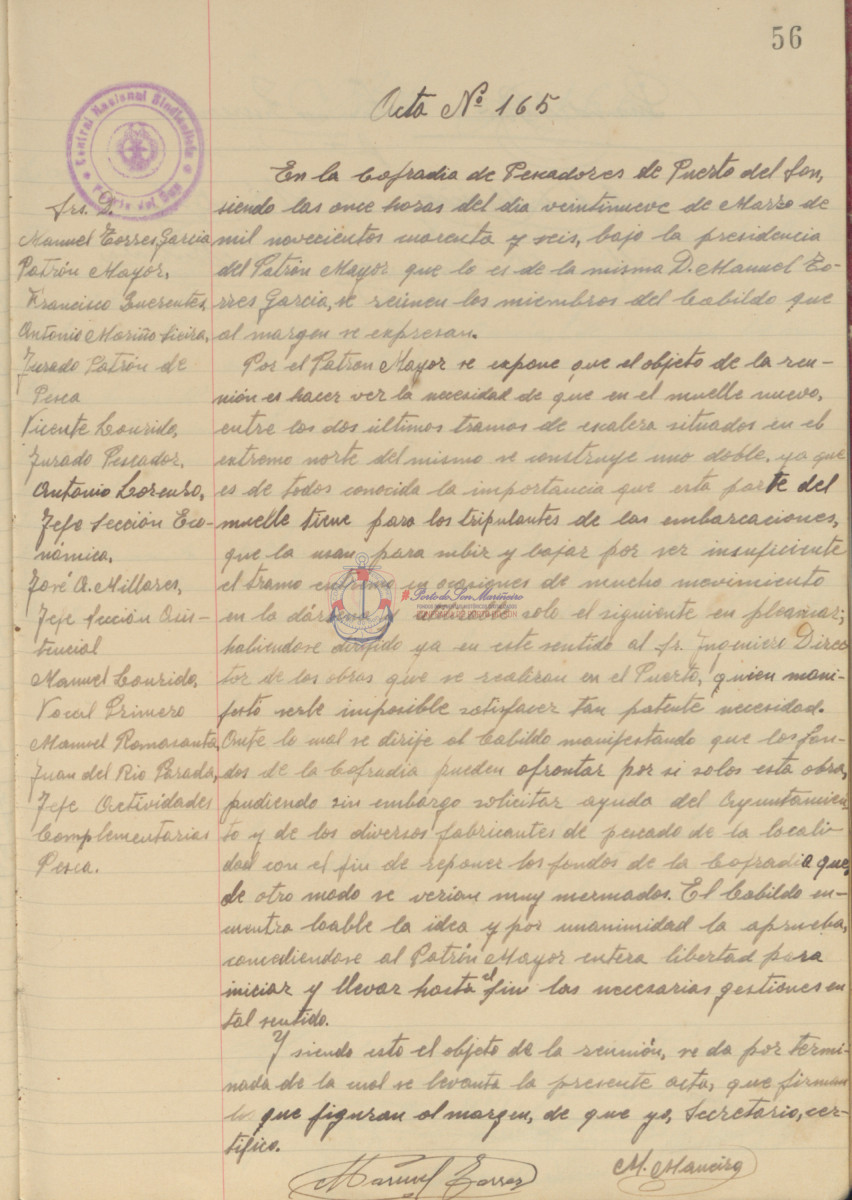 56
Acta Nº 165
Central Nacional Sindicalista
Puerto del Son
Srs. D.
Manuel Torres García
Patrón Mayor,
Francisco
Antonio Mariño Sieira,
Jurado Patrón de
Pesca
Vicente Lourido,
Jurado Pescador,
Antonio Lorenzo,
Jefe Sección Eco-
nómica,
José A. Millares,
Jefe Sección Asis-
tencial
Manuel Lourido,
Vocal Primero
Manuel Romasanta,
Juan del Rio Parada,
Jefe Actividades
Complementarias
Pesca.
En la Cofradia de Pescadores de Puerto del Son,
siendo las once horas del dia veintinueve de Marzo de
mil novecientos cuarenta y seis, bajo la presidencia
del Patrón Mayor que lo es de la misma D. Manuel To-
rres Garcia, se reúnen los miembros del Cabildo que
al margen se expresan.
Por el Patron Mayor se expone que el objeto de la reu-
nión es hacer ver la necesidad de que en el muelle nuevo,
entre los dos últimos tramos de escalera situados en el
extremo norte del mismo se construye uno doble, ya que
es de todos conocida la importancia que esta parte del
muelle tiene para los tripulantes de las embarcaciones,
que la usan para subir y bajar por ser insuficiente
el tramo extremo en ocasiones de mucho movimiento
en la dársena y solo el siguiente en pleamar;
habiendose dirigido ya en este sentido al Sr. Ingeniero Direc-
tor de las obras que se realizan en el Puerto, quien mani-
festó serle imposible satisfacer tan patente necesidad.
Ante lo cual se dirije al Cabildo manifestando que los fon-
dos de la Cofradia pueden afrontar por si solos esta obra,
pudiendo sin embargo solicitar ayuda del Ayuntamien-
to y de los diversos fabricantes de pescado de la locali-
dad con el fin de reponer los fondos de la Cofradia que,
de otro modo se verian muy mermados. El Cabildo en-
cuentra loable la idea y por unanimidad la aprueba,
concediendose al Patrón Mayor entera libertad para
iniciar y llevar hasta el fin las necesarias gestiones en
tal sentido.
Y siendo esto el objeto de la reunión, se da por termi-
nada de la cual se levanta la presente acta, que firman
los que figuran al margen, de que yo, Secretario, cer-
tifico.
Manuel Torres
M. Maneiro
Porto do Son Mariñeiro